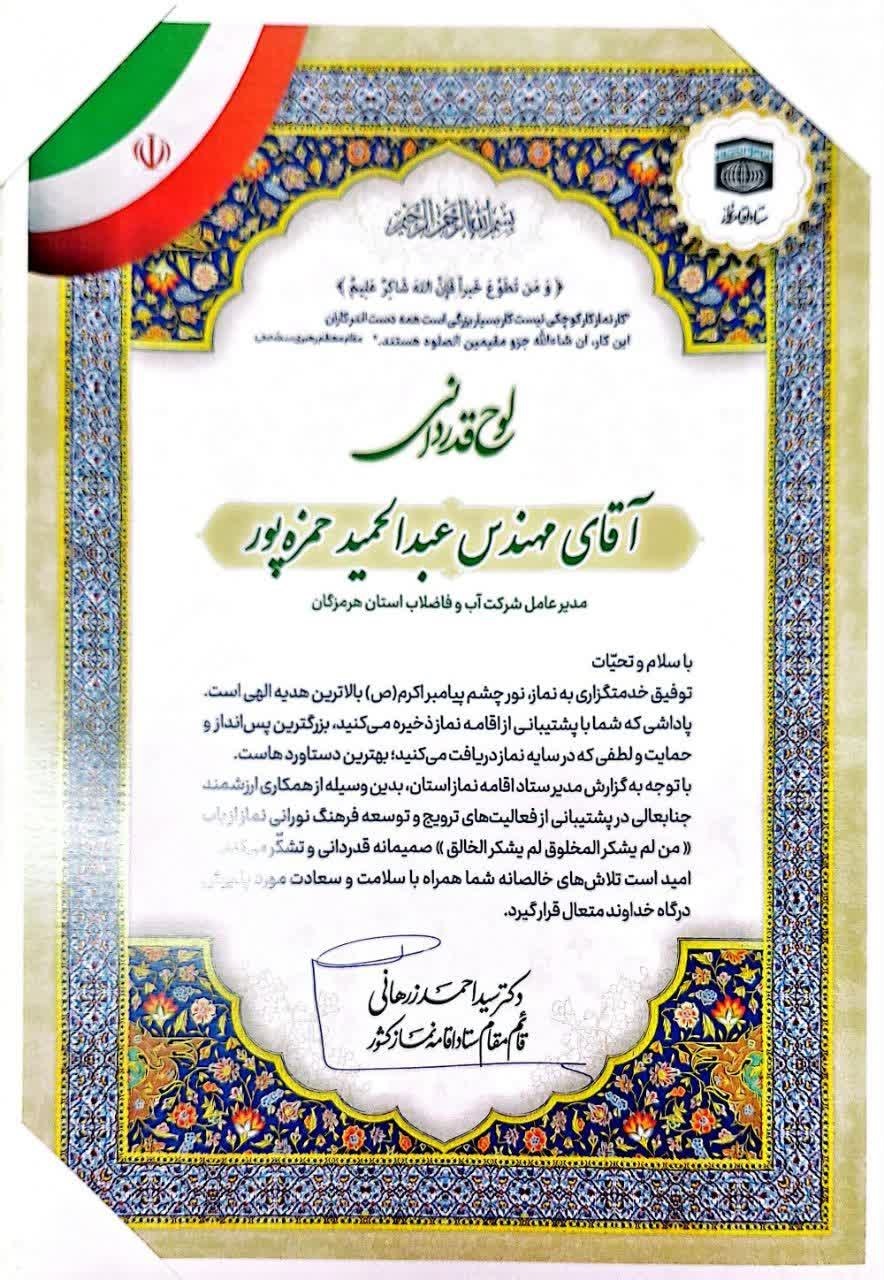 ستاد اقامه نماز
بسم الله الرحمن الرحیم
﴿ وَ مَن تَطَوَّعَ خَیراً فَإِنَّ اللهَ شَاکِرٌ عَلِیمٌ ﴾
"کار نماز کار کوچکی نیست کار بسیار بزرگی است همه دست اندرکاران
این کار، ان شاءالله جزو مقیمین الصلوه هستند." مقام معظم رهبری
لوح قدردانی
آقای مهندس عبدالحمید حمزه پور
مدیر عامل شرکت آب و فاضلاب استان هرمزگان
با سلام و تحیّات
توفیق خدمتگزاری به نماز، نور چشم پیامبر اکرم(ص) بالاترین هدیه الهی است.
پاداشی که شما با پشتیبانی از اقامه نماز ذخیره می‌کنید، بزرگترین پس‌انداز و
حمایت و لطفی که در سایه نماز دریافت می‌کنید؛ بهترین دستاوردهاست.
با توجه به گزارش مدیر ستاد اقامه نماز استان، بدین وسیله از همکاری ارزشمند
جنابعالی در پشتیبانی از فعالیت‌های ترویج و توسعه فرهنگ نورانی نماز از باب
« من لم یشکر المخلوق لم یشکر الخالق » صمیمانه قدردانی و تشکّر می‌کنم.
امید است تلاش‌های خالصانه شما همراه با سلامت و سعادت مورد پذیرش
درگاه خداوند متعال قرار گیرد.
دکتر سید احمد زرهانی
قائم مقام ستاد اقامه نماز کشور